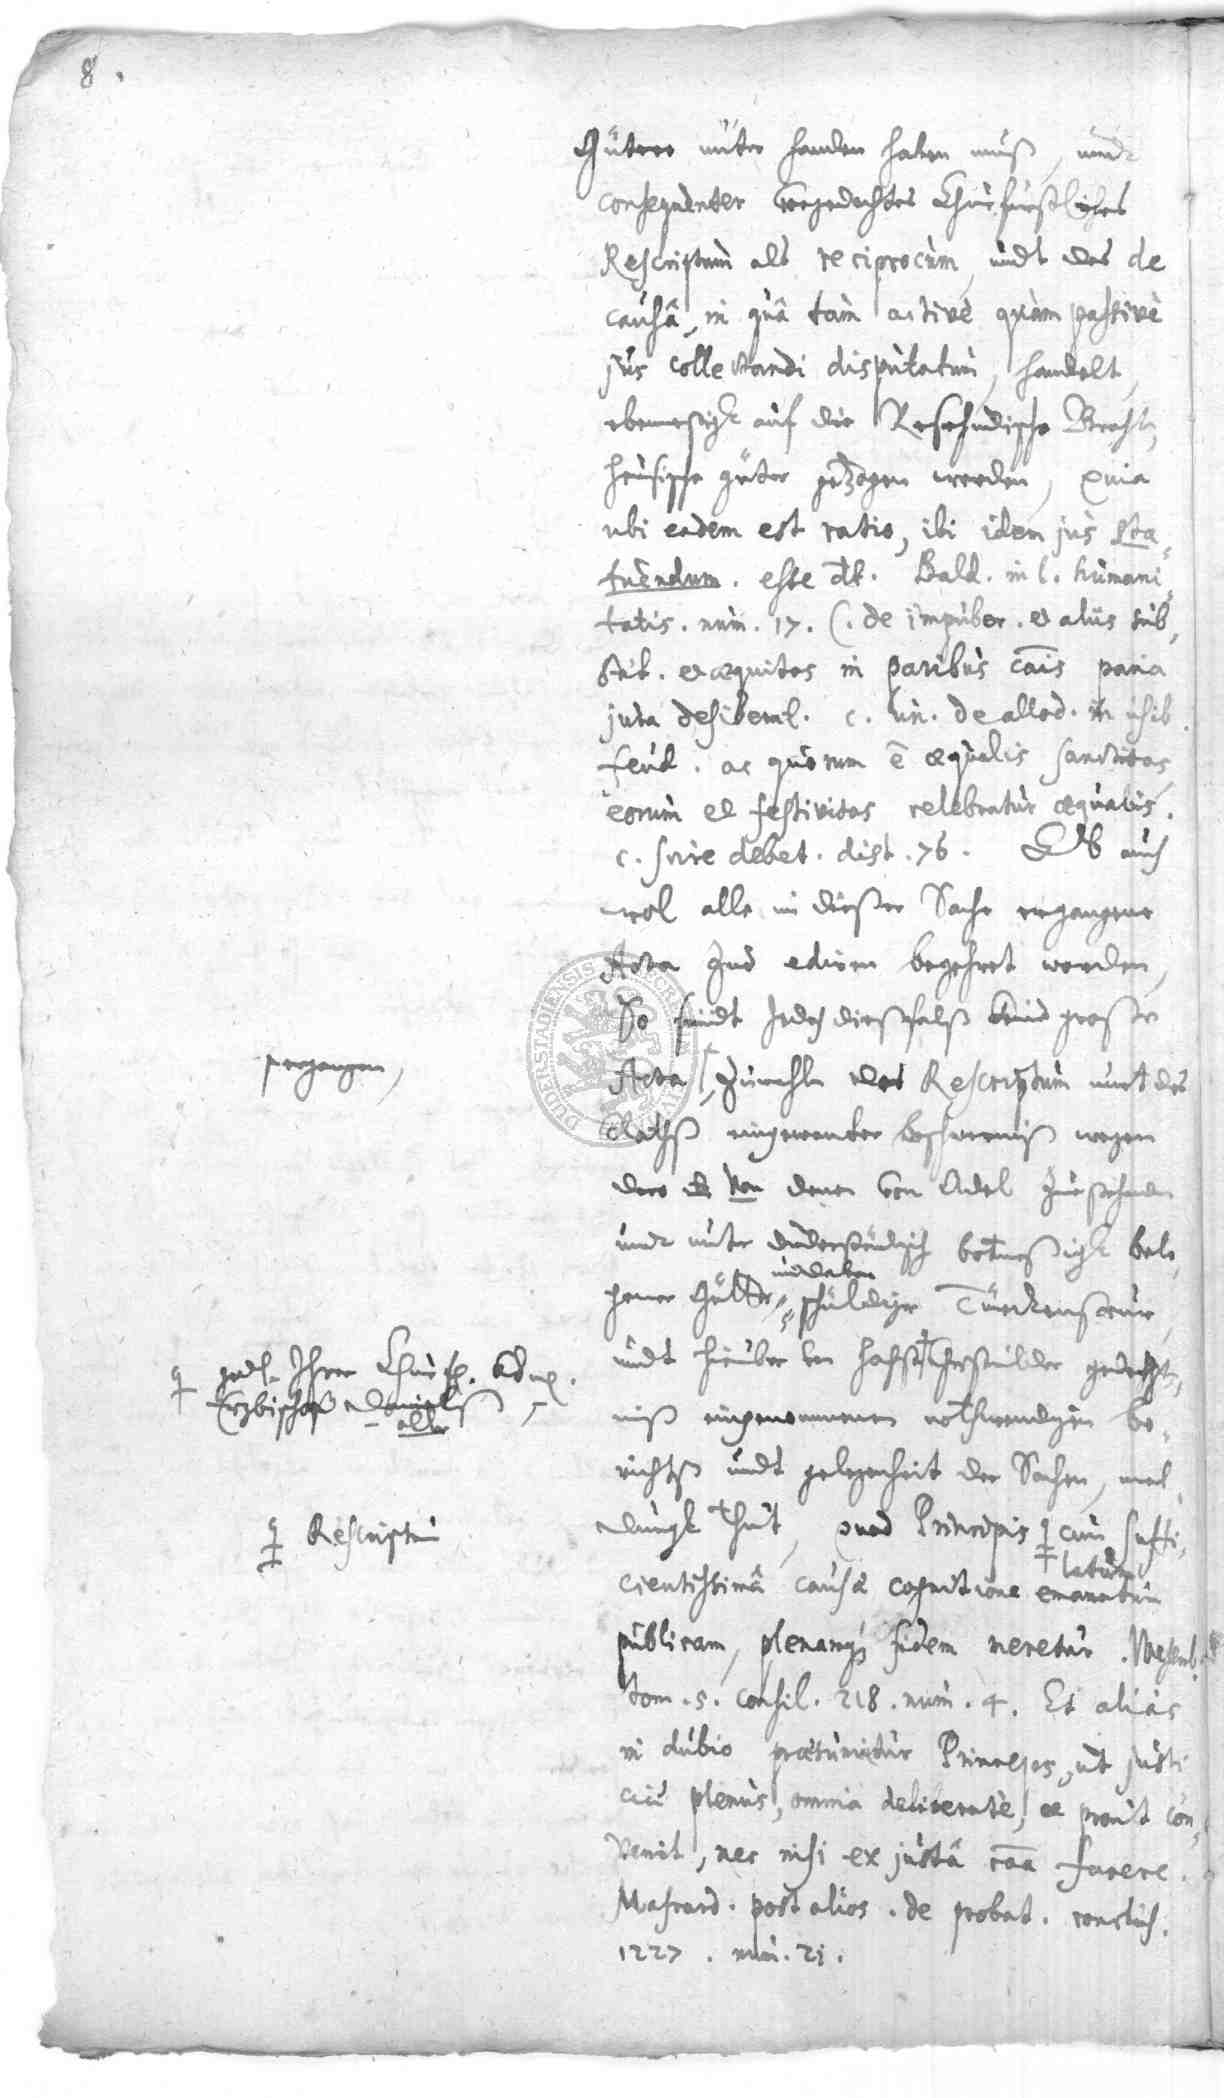 8.
Gütere unter handen haben muß, undt
consequenter vorgedachtes Churfürstliches
Rescriptum als reciprocum, undt das de
causâ, in quâ tam activè quàm passivè
jus collectandi disputatum, handelt,
ebenmeßigk auf die
güter gezogen werden, quia
ubi eadem est ratio, ibi idem jus sta„
tuendum. esse dt. Bald. in l. humani„
tatis. num. 17. C. de impuber. et aliis sub„
stit. et æquitas in paribus cāis paria
jura desiderat. c. un. de allod. in usib.
feud. ac quorum ē æqualis sanctitas,
eorum et festivitas celebratur æqualis.
c. scire debet. dist. 76. Ob auch
wol alle in dießer Sache ergangene
Acta zue ediren begehret worden,
So seindt jedoch dießfalß keine große
Acta, zumahln das Rescriptum nur des
Rathß eingewanter beschwernuß wegen
dero von denen von Adel
undt unter Duderstädtisch botmeßigk bele„
gener Gütter schuldiger Türckensteur,
undt hierüber
niß eingenommenen nothwendigen be„
richtß undt gelegenheit der Sachen, mel„
dungk thut, quod Principis cum suffi„
cientissimâ causæ cognitione emanatum
latum
publicam, plenamq; fidem meretur. Wesemb.
tom. 5. consil. 218. num. 4. Et alias
in dubio præsumitur Princeps, ut justi
ciæ plenus, omnia deliberatè, et prout con„
venit, nec nisi ex justâ cāa facere.
Mascard. post alios. de probat. conclus.
1227. num. 21.
ergangen,
Ihrer Churf.
Erzbischof Danielß
alle
Rescriptum